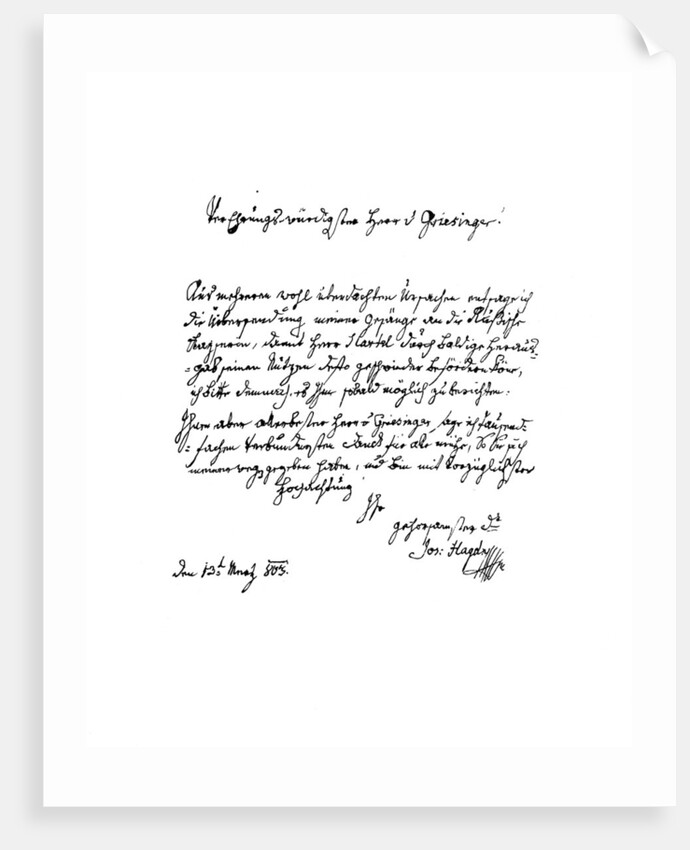 Verehrungs-würdigster Herr v Griesinger!
Aus mehreren wohl überdachten Ursachen entsage ich
die Übersendung meiner Gesänge an die Rußische
Kayserin, damit Herr Hartel durch baldige Heraus-
=gab seinen Nutzen desto geschwinder befördern köne,
ich bitte demnach, es Ihm sobald möglich zu berichten:
Ihnen aber allerbester Herr v Griesinger, sage ich tausend-
=fachen verbundensten Danck für alle mühe, so Sie sich
meinetwegen gegeben haben, und bin mit vorzüglichster
Hochachtung
Ihr
gehorsamster Dr
Jos: Haydn
den 13t Merz 803.